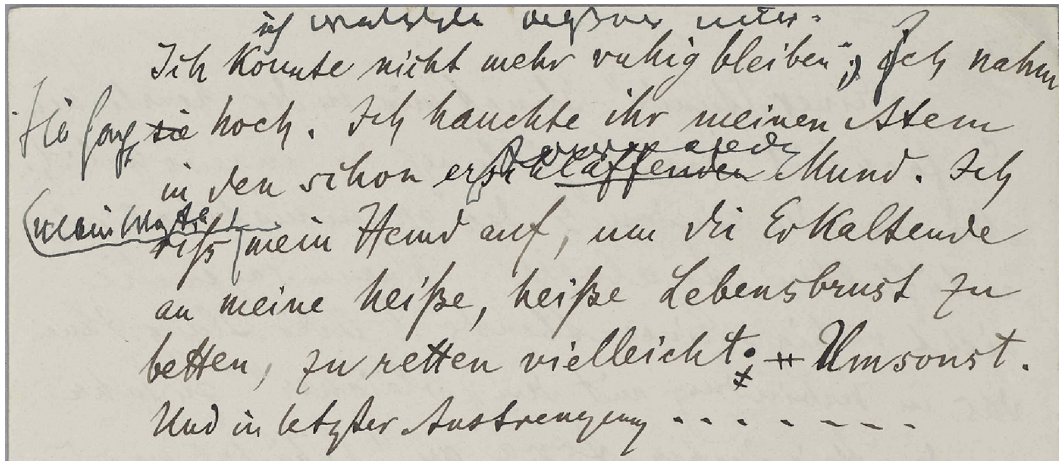 ich
Ich konnte nicht mehr ruhig bleiben; Ich nahm
sie hoch. Ich hauchte ihr meinen Atem
in den schon erschlaffenden Mund. Ich
riß mein Hemd auf, um die Erkaltende
an meine heiße, heiße Lebensbrust zu
betten, zu retten vielleicht. Umsonst.
Und in letzter Anstrengung . . . . . . . .